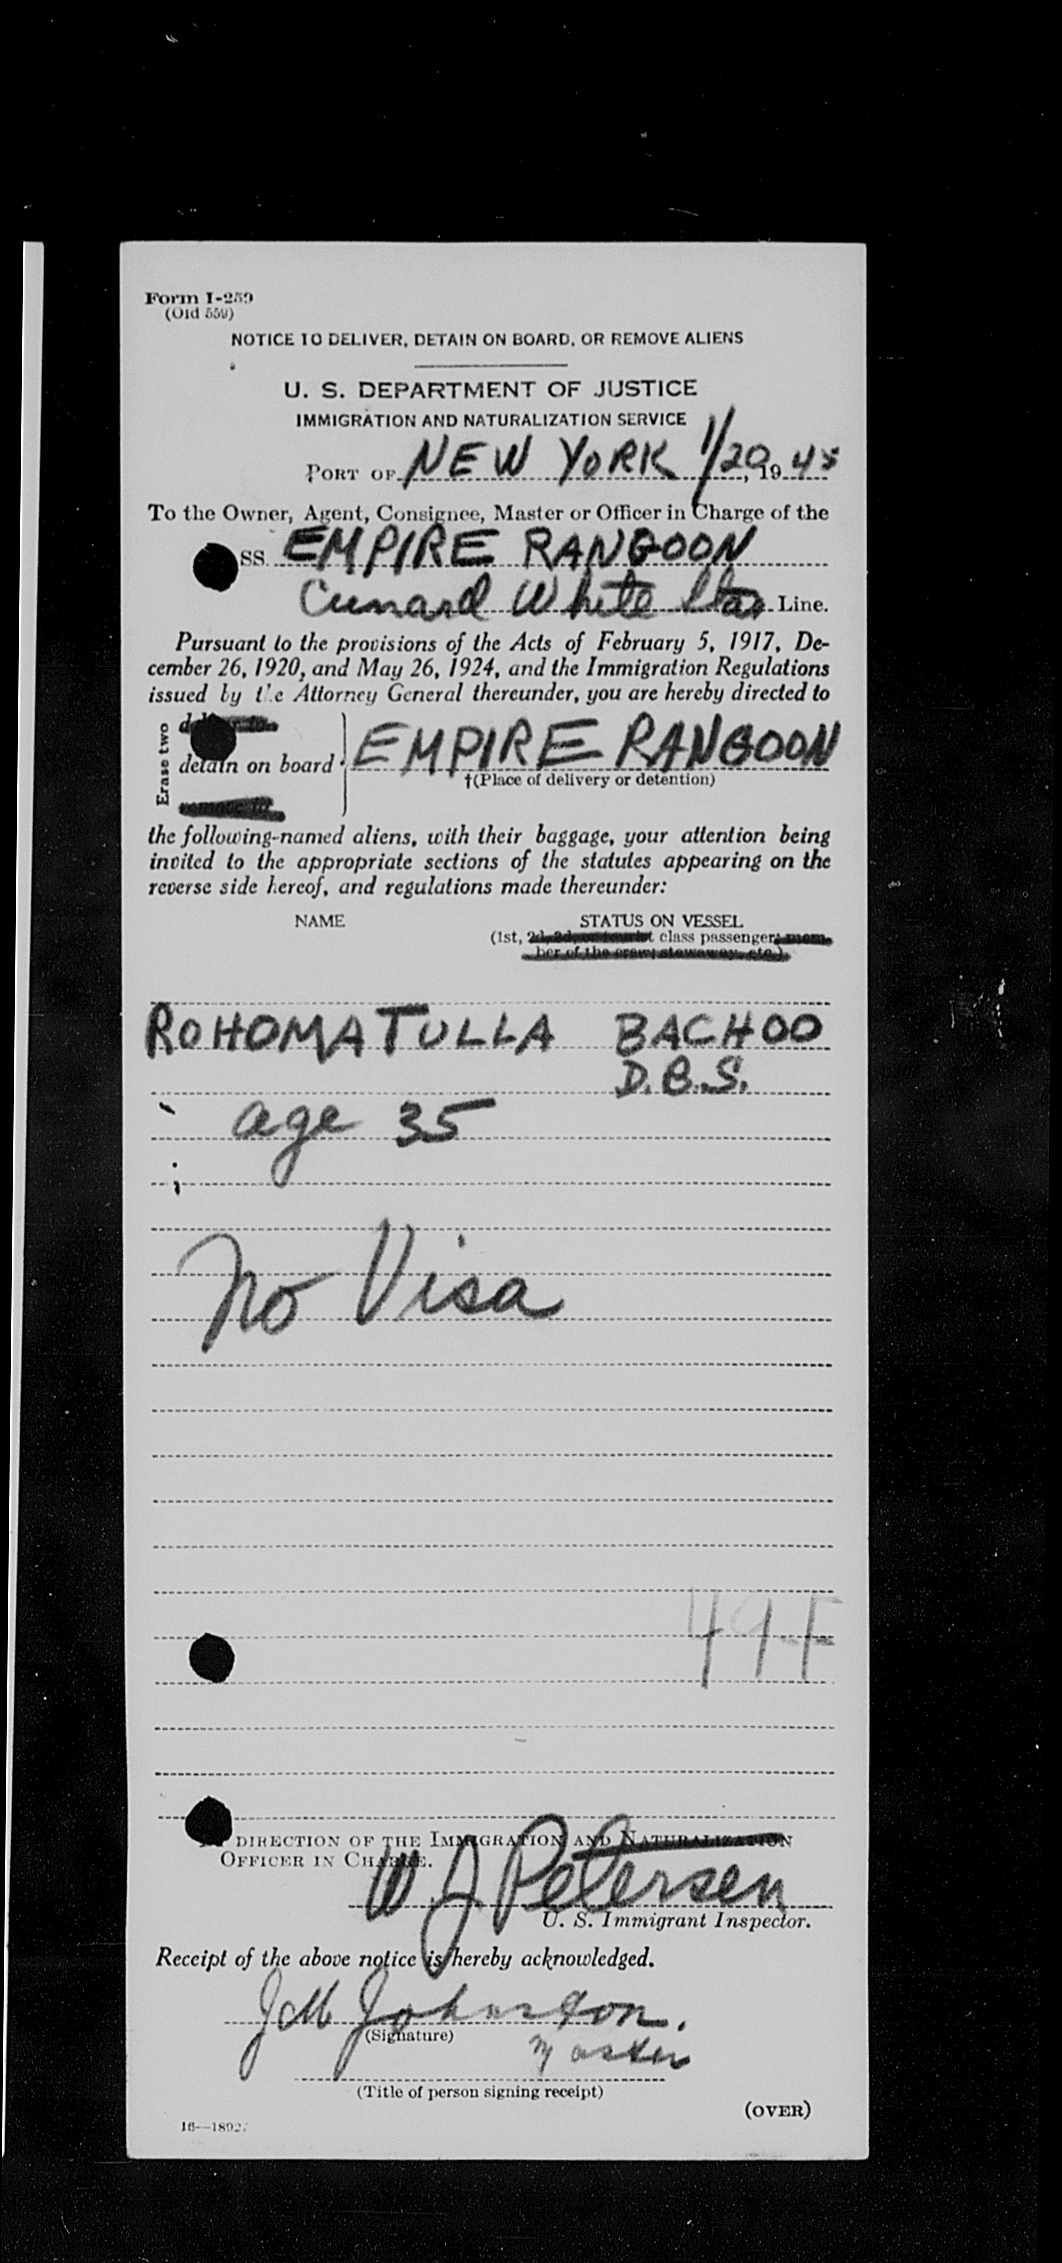 Form I-259
(Old 559)
NOTICE TO DELIVER, DETAIN ON BOARD, OR REMOVE ALIENS
U. S. DEPARTMENT OF JUSTICE
IMMIGRATION AND NATURALIZATION SERVICE
PORT OF NEW YORK 1/20, 1945
To the Owner, Agent, Consignee, Master or Officer in Charge of the
SS. EMPIRE RANGOON
Cunard White Star Line.
Pursuant to the provisions of the Acts of February 5, 1917, De-
cember 26, 1920, and May 26, 1924, and the Immigration Regulations
issued by the Attorney General thereunder, you are hereby directed to
Erase two
detain on board EMPIRE RANGOON
†(Place of delivery or detention)
remove to
the following-named aliens, with their baggage, your attention being
invited to the appropriate sections of the statutes appearing on the
reverse side hereof, and regulations made thereunder:
NAME STATUS ON VESSEL
(1st, 2d, 3d, or tourist class passenger; mem-
ber of the crew; stowaway, etc.)
ROHOMATULLA BACHOO
D.B.S.
age 35
No Visa
49F
DIRECTION OF THE IMMIGRATION AND NATURALIZATION
OFFICER IN CHARGE.
W J Petersen
U. S. Immigrant Inspector.
Receipt of the above notice is hereby acknowledged.
Johnston.
(Signature)
Master
(Title of person signing receipt)
(OVER)